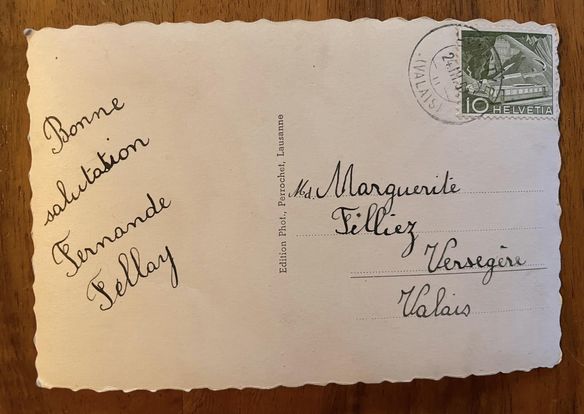 Bonne
salutation
Fernande
Fellay
Edition Phot., Perrochet, Lausanne
(VALAIS)
10 HELVETIA
Md. Marguerite
Filliez
Versegère
Valais